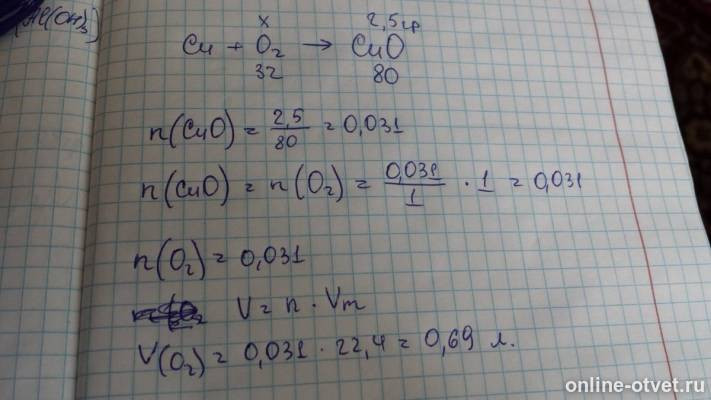 Al(OH)3
x 2,5гр
Cu + O2 → CuO
32 80
n(CuO) = 2,5/80 = 0,031
n(CuO) = n(O2) = 0,031/1 · 1 = 0,031
n(O2) = 0,031
V = n · Vm
V(O2) = 0,031 · 22,4 = 0,69 л.
online-otvet.ru